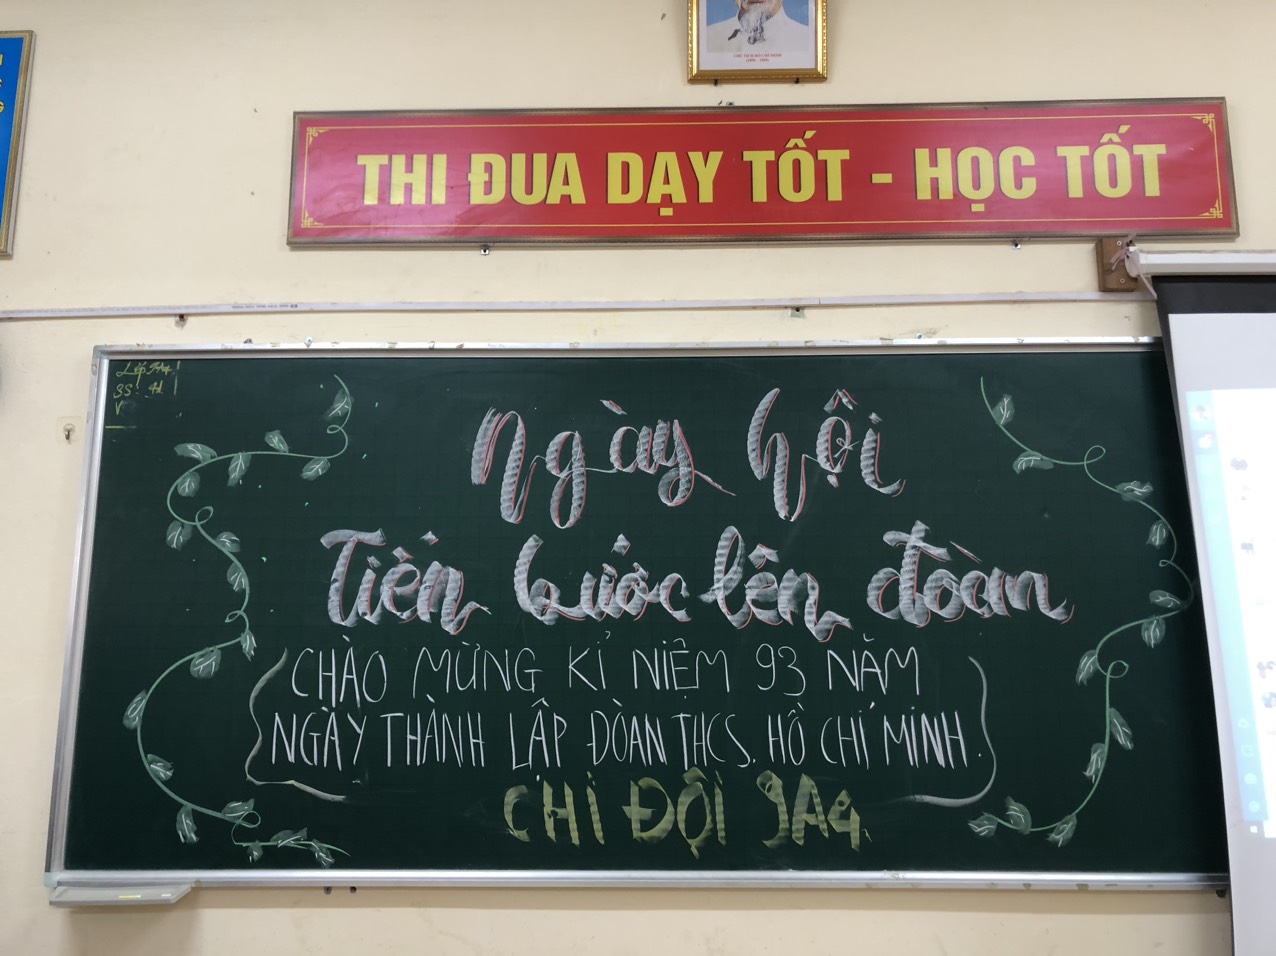 THI ĐUA DẠY TỐT - HỌC TỐT
Lớp 9A4
SS: 41
V
Ngày hội
Tiến bước lên đoàn
CHÀO MỪNG KỈ NIỆM 93 NĂM
NGÀY THÀNH LẬP ĐOÀN THCS. HỒ CHÍ MINH.
CHI ĐỘI 9A4